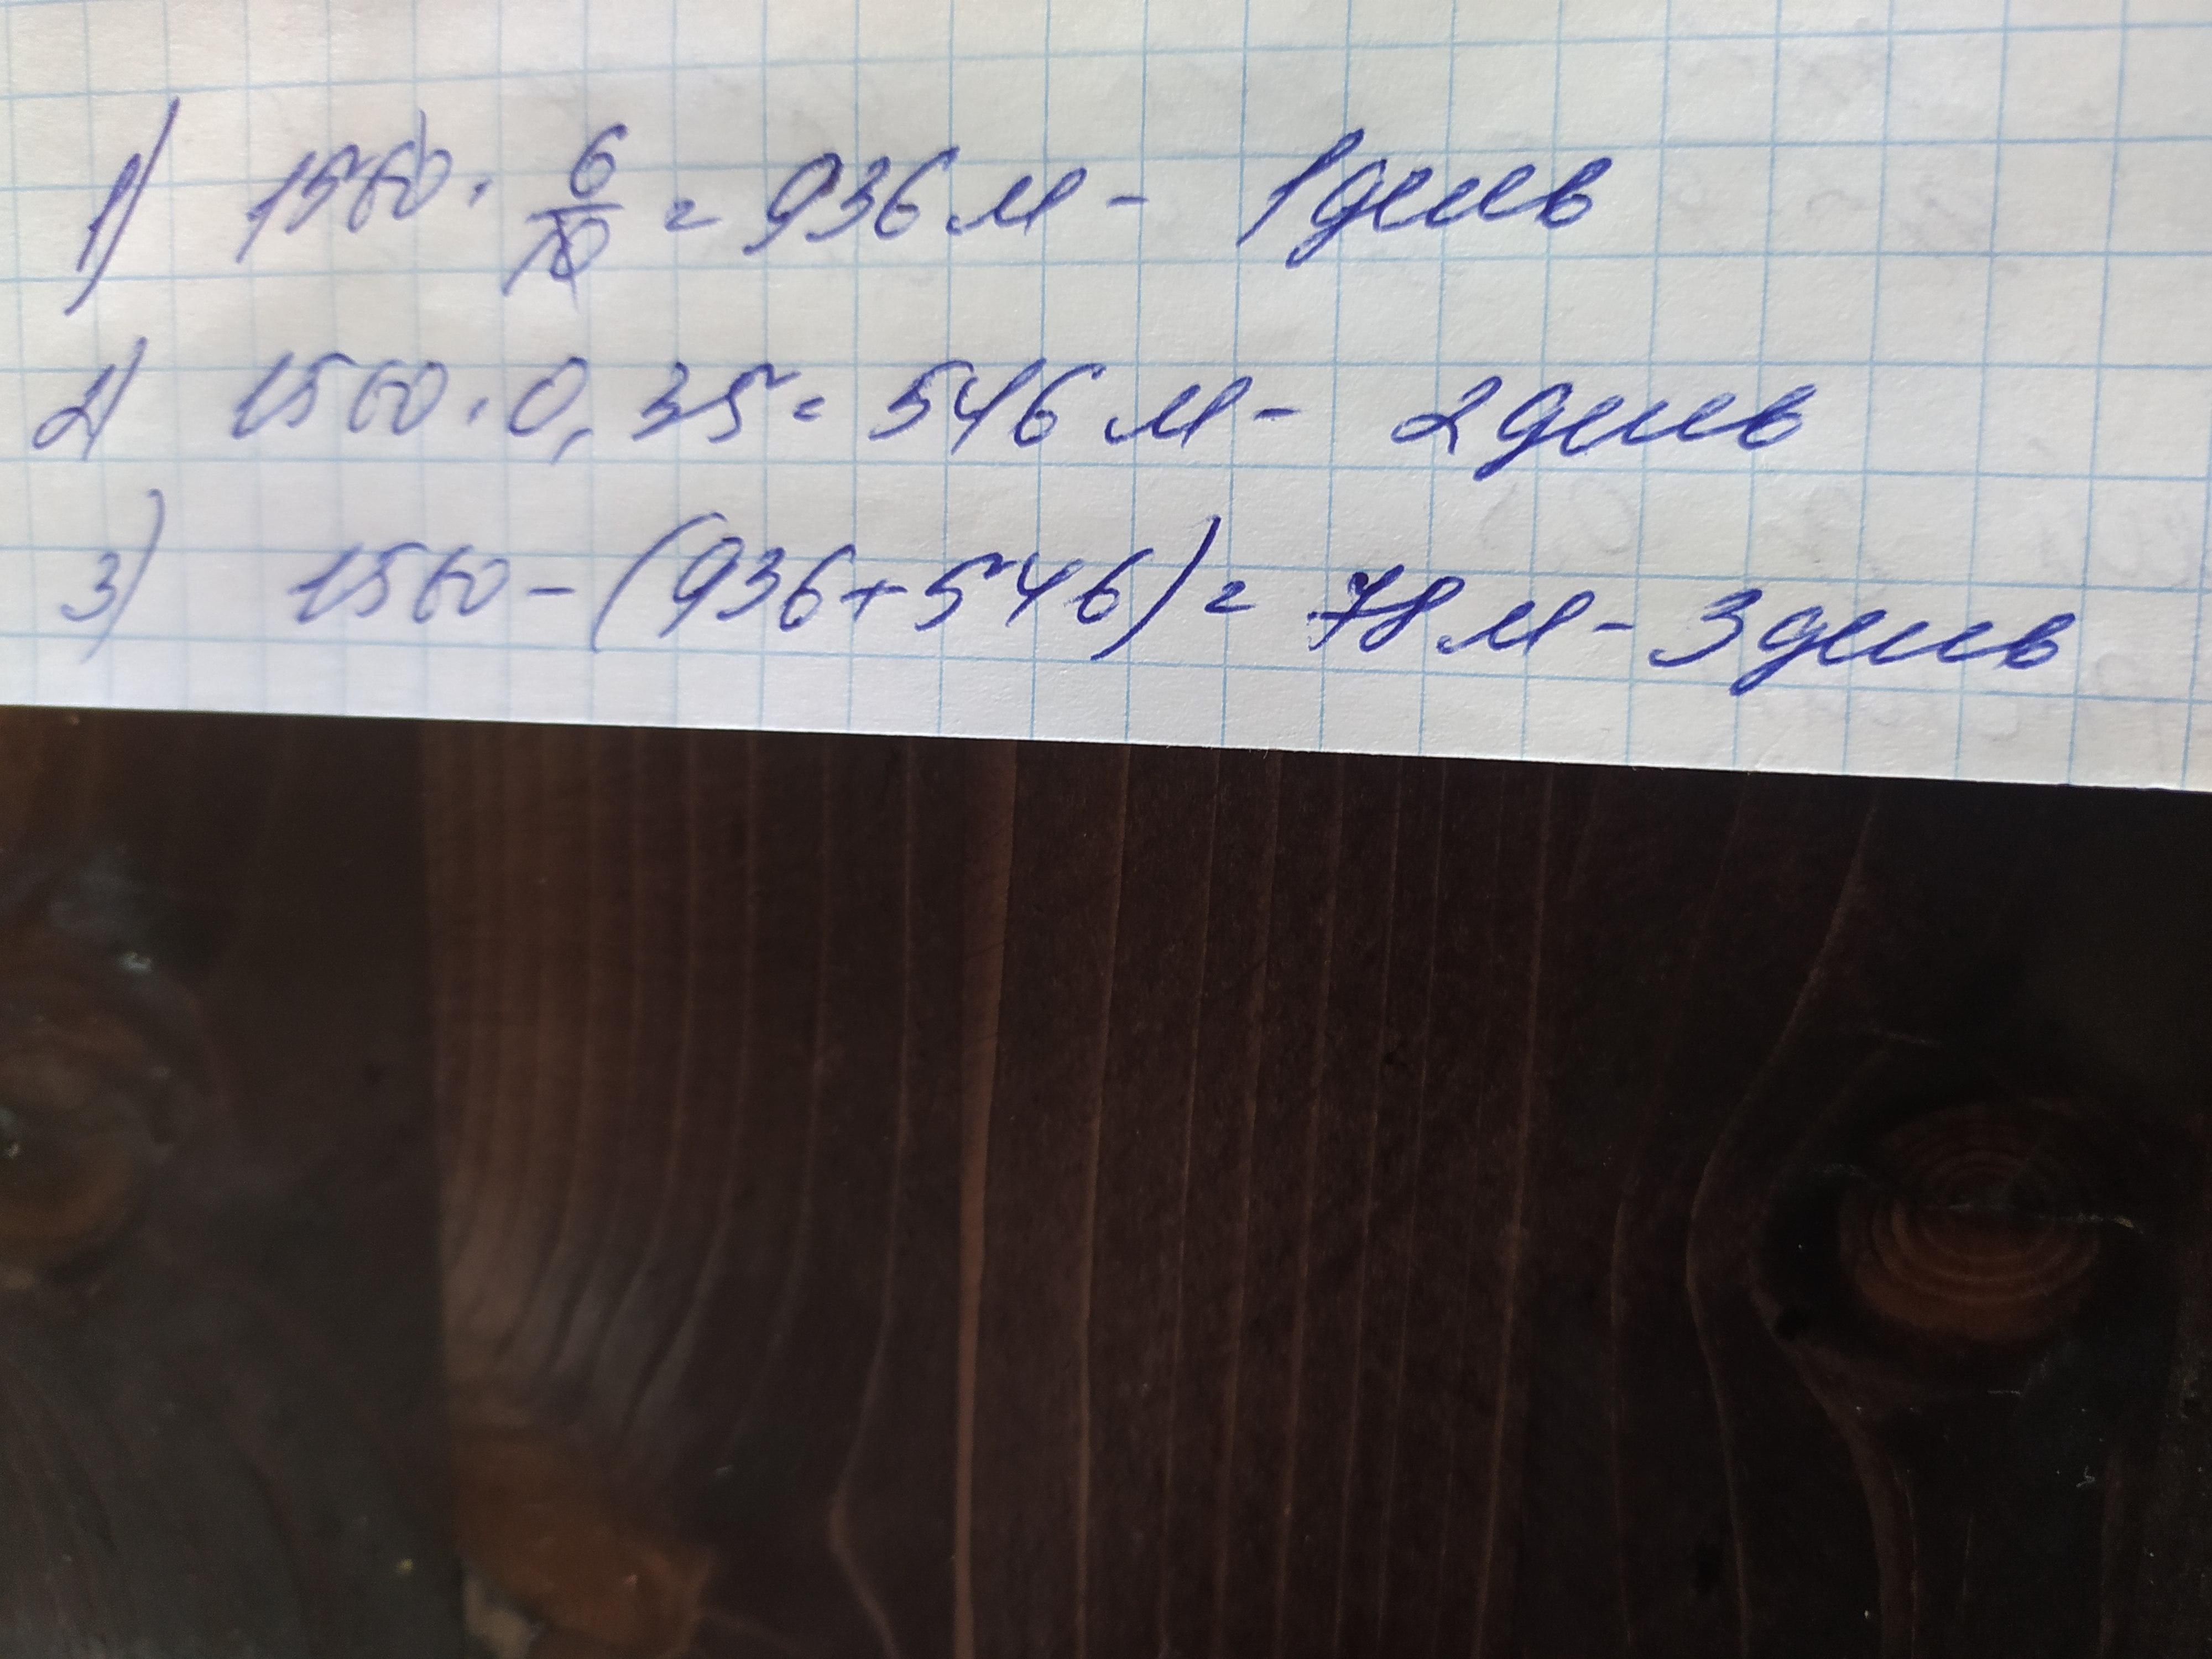 1) 1560 · 6/10 = 936 м - 1 день
2) 1560 · 0,35 = 546 м - 2 день
3) 1560 - (936+546) = 78 м - 3 день